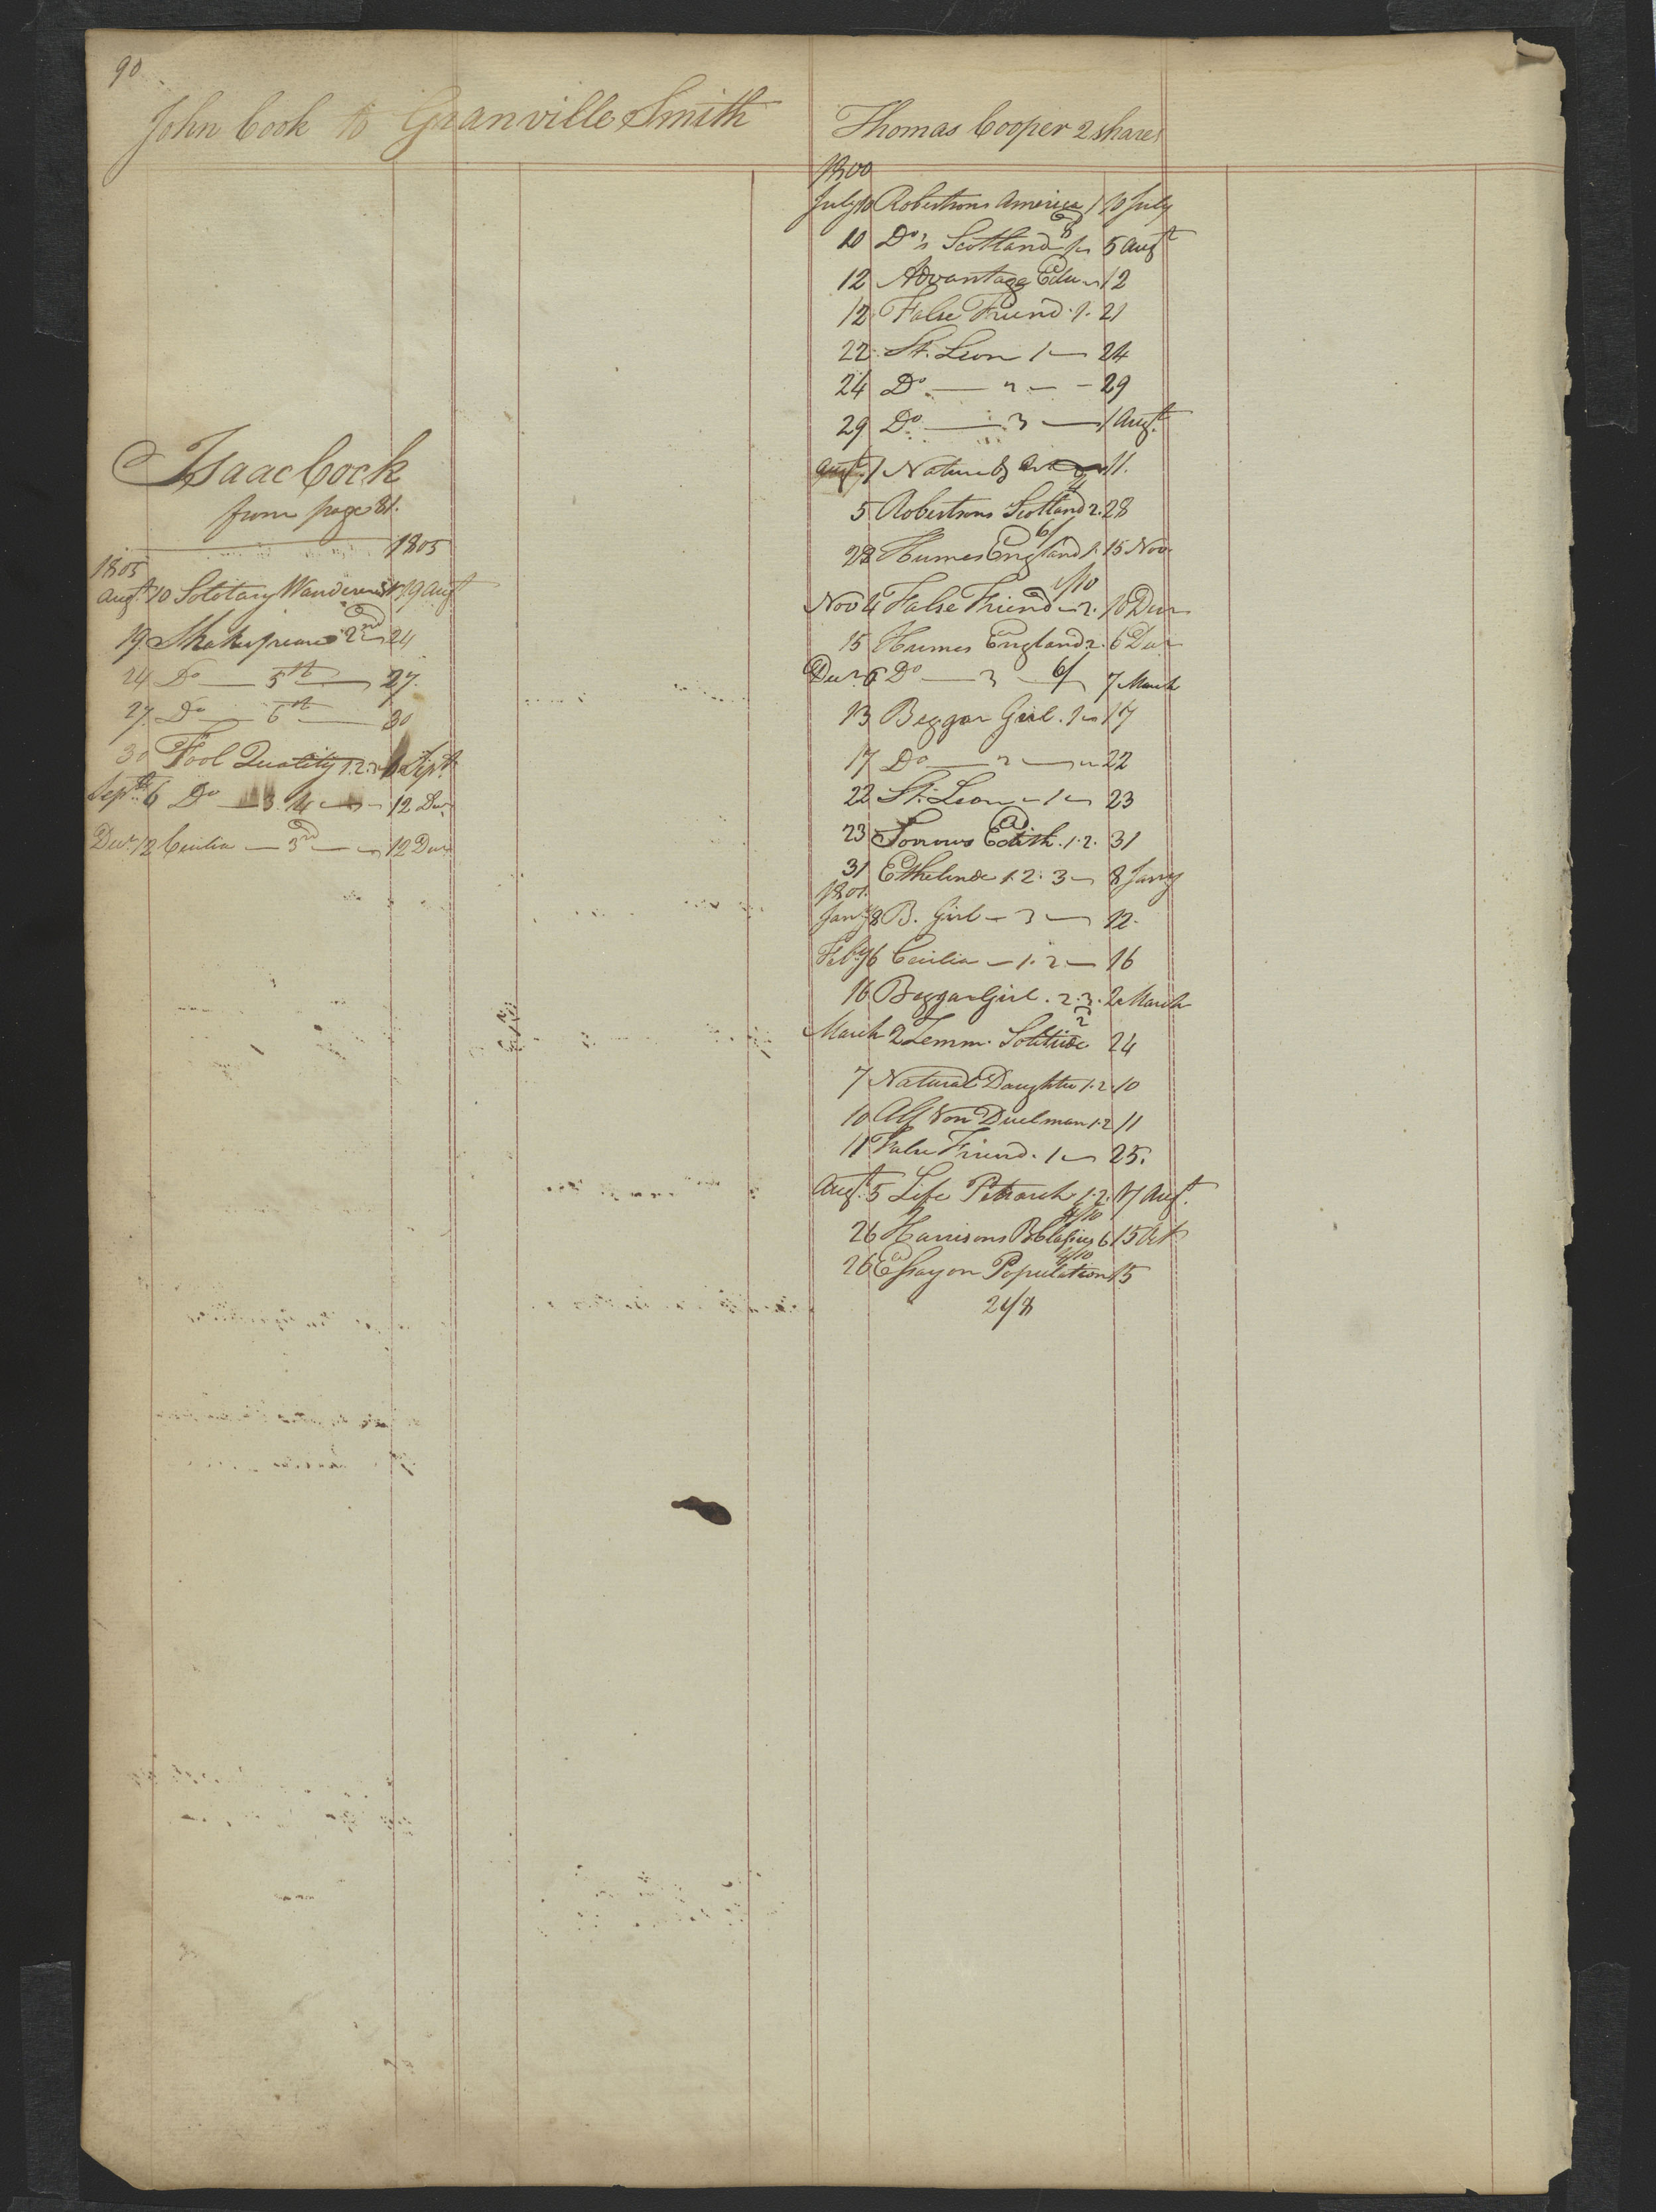 90
John Cook to Granville Smith
Isaac Cock
from page 81.
1805 1805
Augt. 10 Solotary Wanderer 19 Augt
19 Shakespeare 2nd 24
24 Do — 5th — 27.
27. Do — 6th — 30
30 Fool Quality 1. 2. 6 Sept.
Septr. 6 Do — 3. 4 — 12 Decr.
Decr. 12 Cecilia — 3rd — 12 Decr
Thomas Cooper 2 shares
1800
July 10 Robertsons America 1 10 July
10 Do's Scotland 1 5 Augt
12 Advantage Edu 12
12 False Friend. 1. 21
22 St. Leon 1 — 24
24 Do. — 2 — 29
29 Do. — 3 — 1 Augt.
Augt. 1 Nature & Art 11.
5 Robertsons Scotland 2. 28
6/
28 Humes England 1. 15 Nov.
1/10
Nov 4 False Friend — 2. 10 Decr
15 Humes England 2. 6 Decr
Decr. 6 Do — 3 6/ 7 March
13 Beggar Girl. 1 17
17 Do — 2 — 22
22 St. Leon — 1 — 23
23 Sorrows Edith. 1. 2. 31
31 Ethelinde 1. 2. 3 — 8 Jany
1801.
Jany 8 B. Girl — 3 — 12.
Feby 6 Cecilia — 1. 2 — 16
16 Beggar Girl. 2. 3. 2 March
March 2 Zemm. Solitude 24
7 Natural Daughter 1. 2. 10
10 Alf Von Duelman 1. 2 11
11 False Friend. 1 — 25.
Augt. 5 Life Petrarch 1. 2. 17 Augt.
4/10
26 Harrisons B Classics 6 15 Oct
4/10
26 Essay on Population 15
24/8